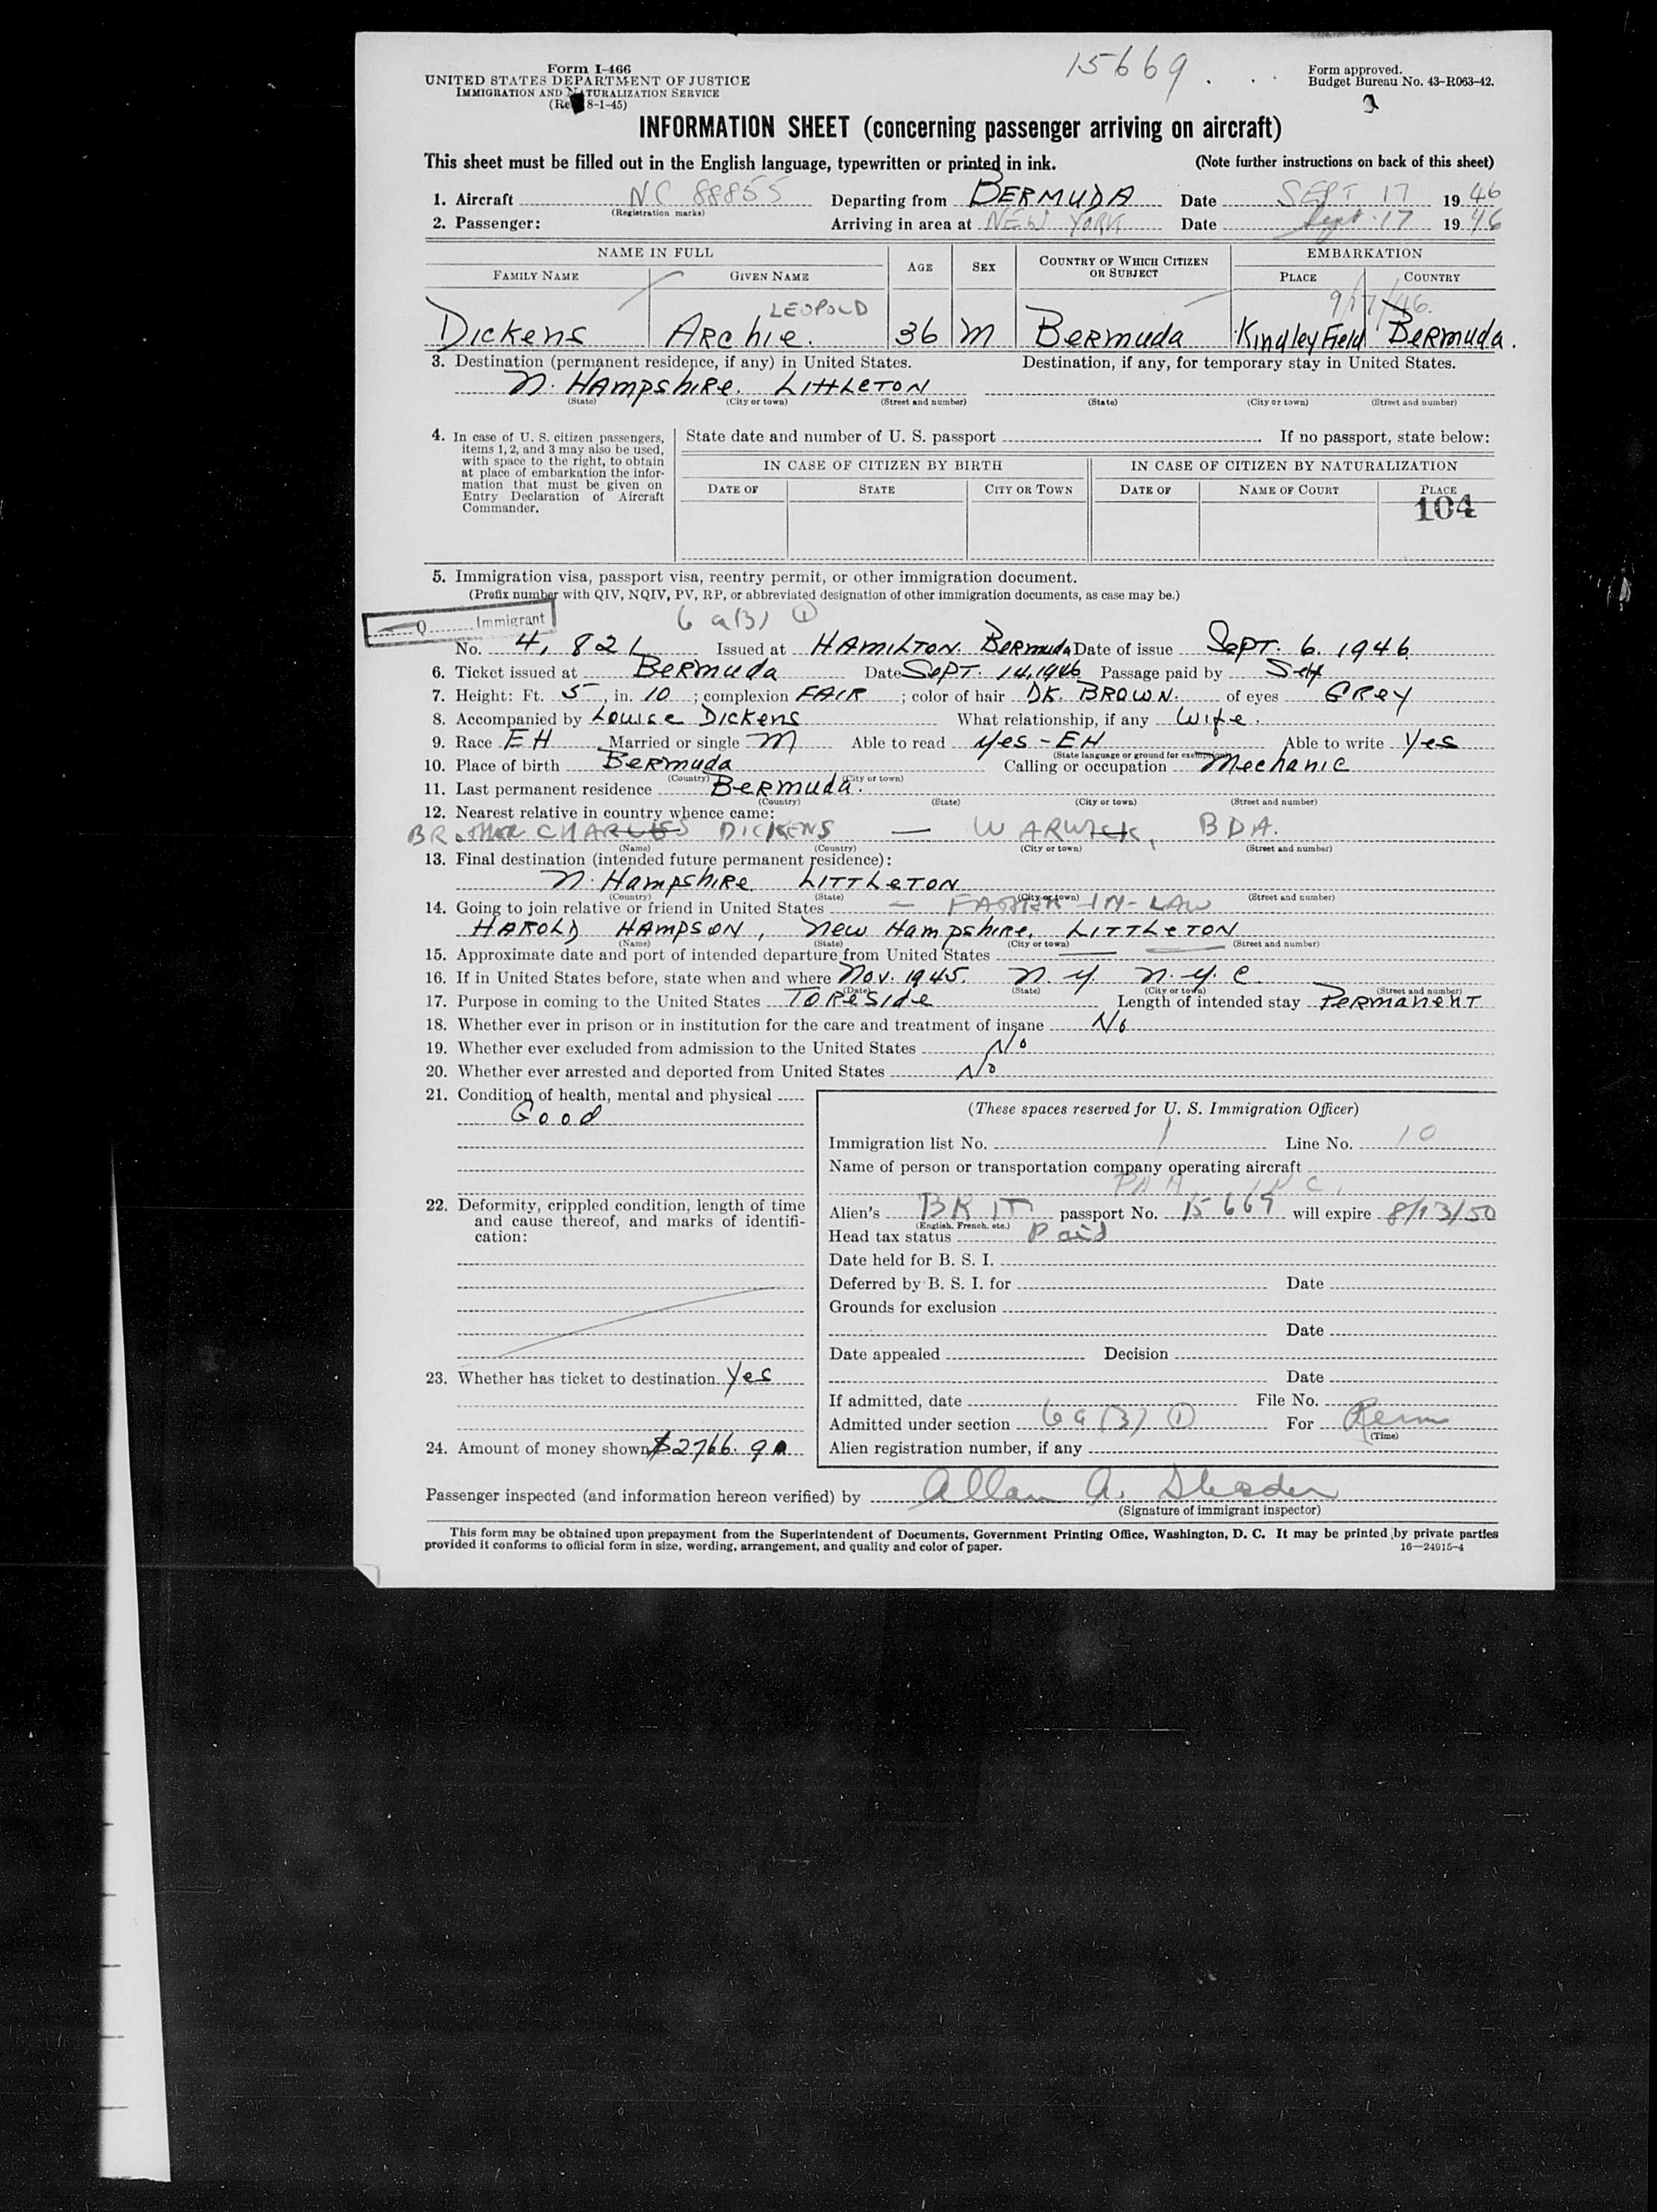 Form I-466
UNITED STATES DEPARTMENT OF JUSTICE
IMMIGRATION AND NATURALIZATION SERVICE
(Rev. 8-1-45)
15669
Form approved.
Budget Bureau No. 43-R063-42.
INFORMATION SHEET (concerning passenger arriving on aircraft)
This sheet must be filled out in the English language, typewritten or printed in ink. (Note further instructions on back of this sheet)
1. Aircraft NC 88855 Departing from BERMUDA Date SEPT 17 1946
(Registration marks)
2. Passenger: Arriving in area at NEW YORK Date Sept. 17 1946
NAME IN FULL AGE SEX COUNTRY OF WHICH CITIZEN OR SUBJECT EMBARKATION
FAMILY NAME GIVEN NAME PLACE COUNTRY
LEOPOLD 9/17/46.
Dickens Archie. 36 M Bermuda Kindley Field Bermuda.
3. Destination (permanent residence, if any) in United States. Destination, if any, for temporary stay in United States.
N. Hampshire. Littleton
(State) (City or town) (Street and number) (State) (City or town) (Street and number)
4. In case of U. S. citizen passengers, items 1, 2, and 3 may also be used, with space to the right, to obtain at place of embarkation the information that must be given on Entry Declaration of Aircraft Commander.
State date and number of U. S. passport If no passport, state below:
IN CASE OF CITIZEN BY BIRTH IN CASE OF CITIZEN BY NATURALIZATION
DATE OF STATE CITY OR TOWN DATE OF NAME OF COURT PLACE
104
5. Immigration visa, passport visa, reentry permit, or other immigration document.
(Prefix number with QIV, NQIV, PV, RP, or abbreviated designation of other immigration documents, as case may be.)
Q Immigrant 6 a(3) 1
No. 4,821 Issued at HAMILTON. Bermuda Date of issue Sept. 6. 1946.
6. Ticket issued at Bermuda Date Sept. 14, 1946 Passage paid by Self
7. Height: Ft. 5, in. 10; complexion FAIR; color of hair DK. BROWN. of eyes Grey
8. Accompanied by Louise Dickens What relationship, if any Wife.
9. Race EH Married or single M Able to read Yes - EH Able to write Yes
(State language or ground for exemption)
10. Place of birth Bermuda Calling or occupation Mechanic
(Country) (City or town)
11. Last permanent residence Bermuda.
(Country) (State) (City or town) (Street and number)
12. Nearest relative in country whence came:
BROTHER CHARLES DICKENS — WARWICK, BDA.
(Name) (Country) (City or town) (Street and number)
13. Final destination (intended future permanent residence):
N. Hampshire Littleton
(Country) (State) (City or town) (Street and number)
14. Going to join relative or friend in United States — FATHER-IN-LAW
HAROLD HAMPSON, New Hampshire, Littleton
(Name) (State) (City or town) (Street and number)
15. Approximate date and port of intended departure from United States —
16. If in United States before, state when and where Nov. 1945. N.Y. N.Y.C.
(Date) (State) (City or town) (Street and number)
17. Purpose in coming to the United States To Reside Length of intended stay Permanent
18. Whether ever in prison or in institution for the care and treatment of insane No
19. Whether ever excluded from admission to the United States No
20. Whether ever arrested and deported from United States No
21. Condition of health, mental and physical
Good
22. Deformity, crippled condition, length of time and cause thereof, and marks of identification:
23. Whether has ticket to destination Yes
24. Amount of money shown $2766.90
(These spaces reserved for U. S. Immigration Officer)
Immigration list No. 1 Line No. 10
Name of person or transportation company operating aircraft
PAA INC.
Alien's BRIT passport No. 15669 will expire 8/13/50
(English, French, etc.)
Head tax status Paid
Date held for B. S. I.
Deferred by B. S. I. for Date
Grounds for exclusion
Date
Date appealed Decision
Date
If admitted, date File No.
Admitted under section 6a (3) 1 For Perm
(Time)
Alien registration number, if any
Passenger inspected (and information hereon verified) by Allan A.
(Signature of immigrant inspector)
This form may be obtained upon prepayment from the Superintendent of Documents, Government Printing Office, Washington, D. C. It may be printed by private parties
provided it conforms to official form in size, wording, arrangement, and quality and color of paper. 16—24915-4